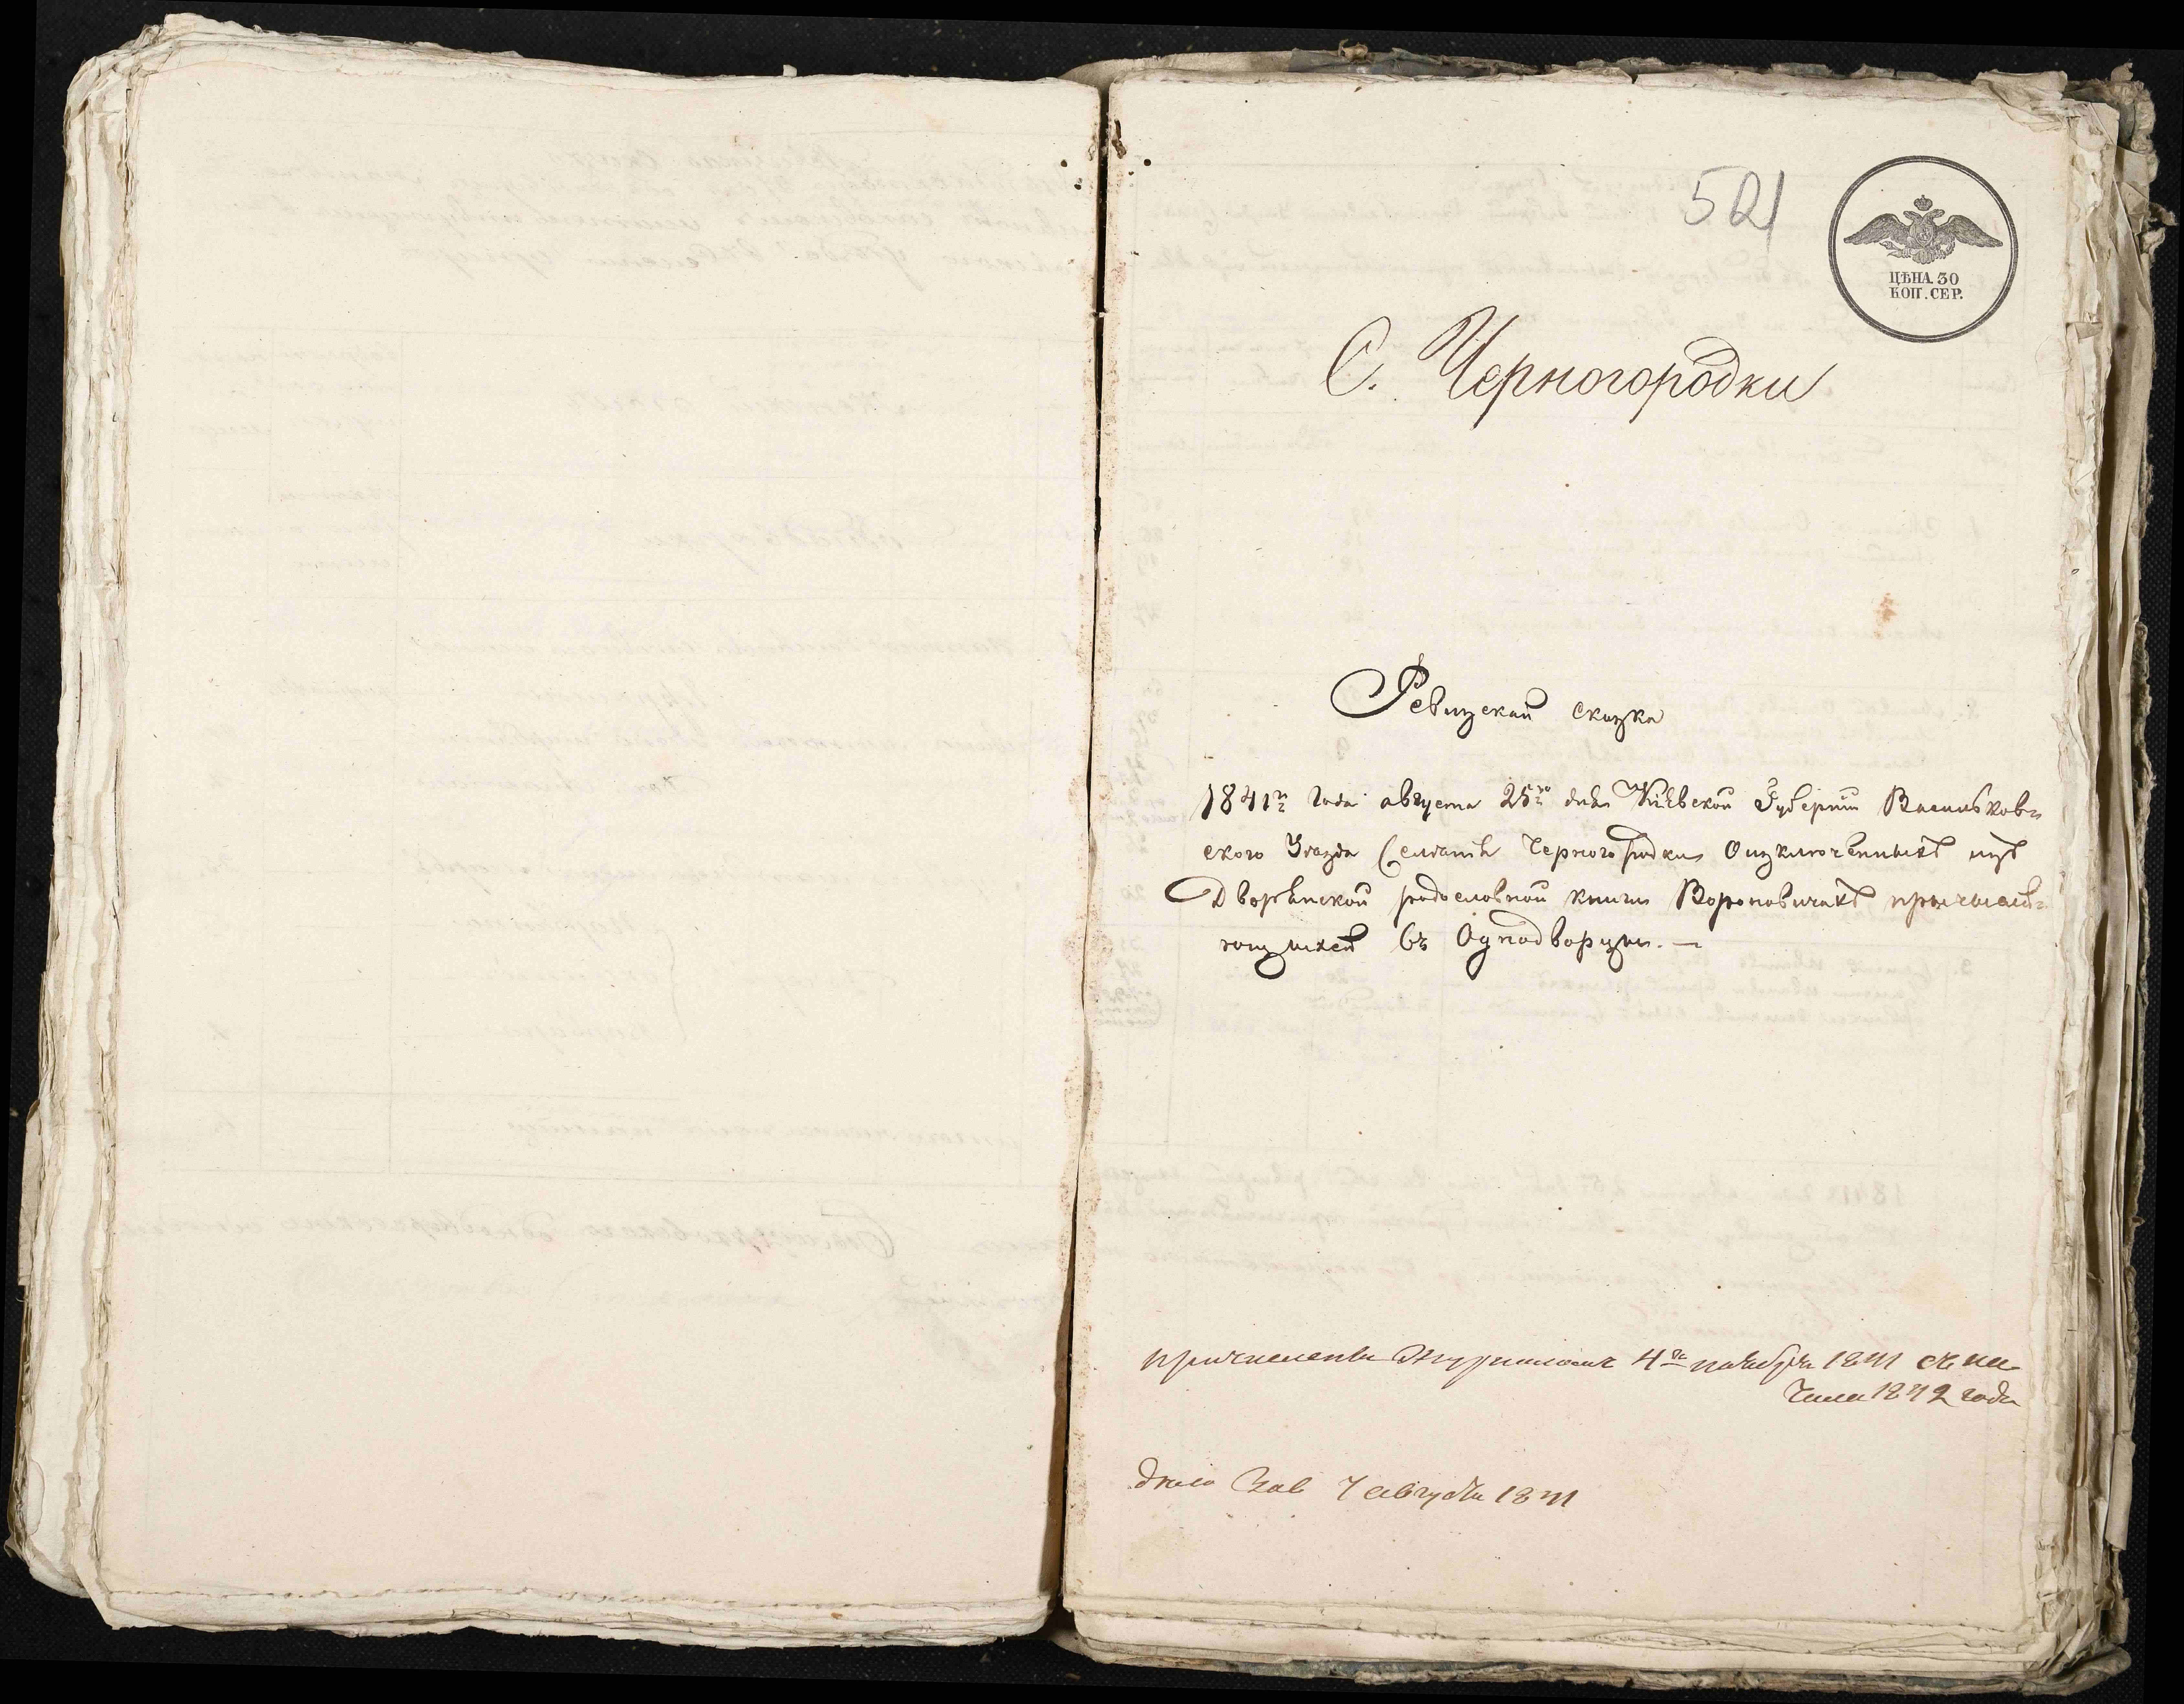 521
ЦѢНА 30
КОП. СЕР.
С. Черногородки
Ревизская сказка
1841го Года августа 25го дня Кіевской Губерніи Васильков-
ского Уезда Черногородки О изключенныхъ изъ
Дворянской родословной книги Вороновичахъ причисля-
ющихся въ Однодворцы. —
причислены Журналомъ 4го ноября 1841 съ на-
чала 1842 года
дело 7 августа 1841